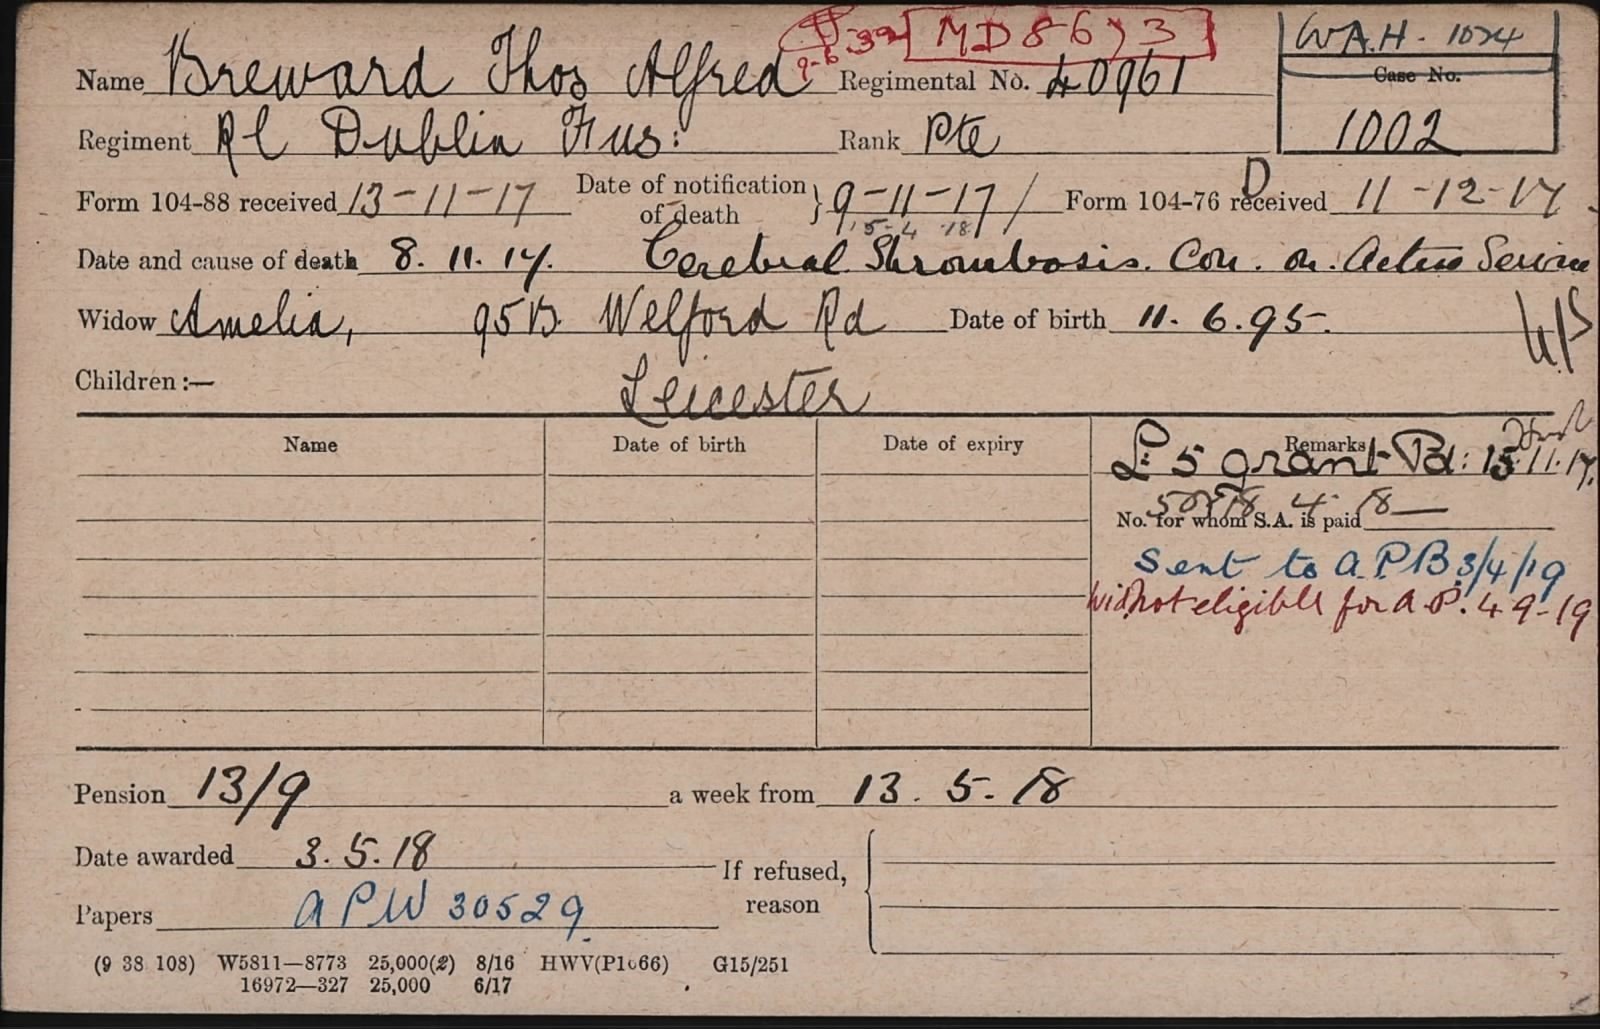 9-6-32 MD 8673 W.A.H. 1024
Name Breward Thos Alfred Regimental No. 40961 Case No.
Regiment Rl Dublin Fus: Rank Pte 1002
Form 104-88 received 13-11-17 Date of notification of death } 9-11-17/ Form 104-76 D received 11-12-17
15-4 18
Date and cause of death 8.11.17. Cerebral Thrombosis. Con. on. Active Service
Widow Amelia, 95B Welford Rd Date of birth 11.6.95.
Children :— Leicester
Name Date of birth Date of expiry Remarks
£5 grant Pd: 15.11.17.
No. for whom S.A. is paid
Sent to A.P.B 3/4/19
Wid not eligible for A.P. 4 9-19
Pension 13/9 a week from 13.5.18
Date awarded 3.5.18 If refused,
Papers APW 30529 reason
(9 38 108) W5811—8773 25,000(2) 8/16 HWV(P1066) G15/251
16972—327 25,000 6/17